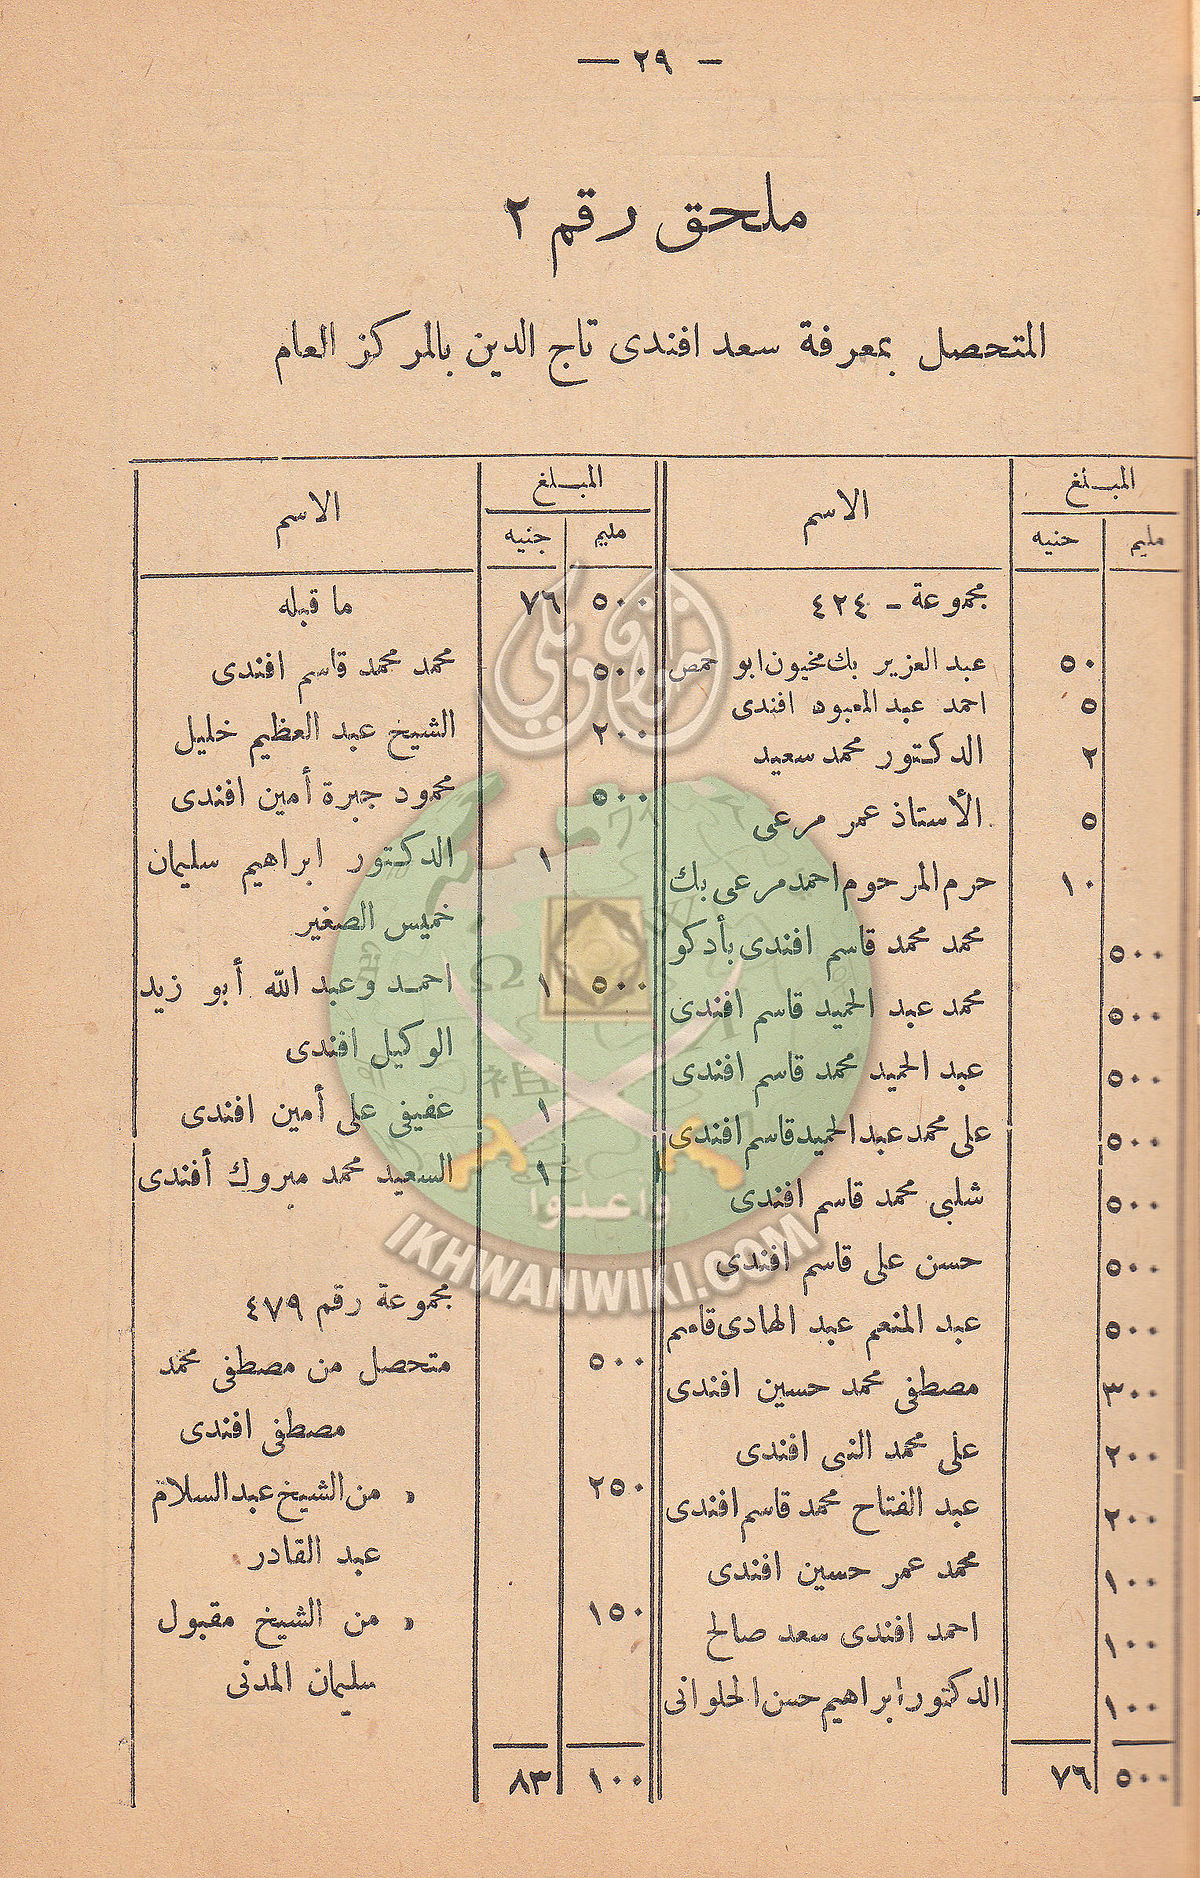 — ٢٩ —
ملحق رقم ٢
المتحصل بمعرفة سعد افندى تاج الدين بالمركز العام
المبلغ
مليم جنيه الاسم
مجموعة - ٤٢٤
٥٠ عبد العزيز بك مخيون ابو حمص
٥ احمد عبد المعبود افندى
٢ الدكتور محمد سعيد
٥ الأستاذ عمر مرعى
١٠ حرم المرحوم احمد مرعى بك
٥٠٠ محمد محمد قاسم افندى بأدكو
٥٠٠ محمد عبد الحميد قاسم افندى
٥٠٠ عبد الحميد محمد قاسم افندى
٥٠٠ على محمد عبد الحميد قاسم افندى
٥٠٠ شلبى محمد قاسم افندى
٥٠٠ حسن على قاسم افندى
٥٠٠ عبد المنعم عبد الهادى قاسم
٣٠٠ مصطفى محمد حسين افندى
٢٠٠ على محمد النبى افندى
٢٠٠ عبد الفتاح محمد قاسم افندى
١٠٠ محمد عمر حسين افندى
١٠٠ احمد افندى سعد صالح
١٠٠ الدكتور ابراهيم حسن الحلوانى
٥٠٠ ٧٦
المبلغ
مليم جنيه الاسم
٥٠٠ ٧٦ ما قبله
٥٠٠ محمد محمد قاسم افندى
٢٠٠ الشيخ عبد العظيم خليل
٥٠٠ محمود جبرة أمين افندى
١ الدكتور ابراهيم سليمان
خميس الصغير
٥٠٠ ١ احمد وعبد الله أبو زيد
الوكيل افندى
١ عفيفى على أمين افندى
١ السعيد محمد مبروك أفندى
مجموعة رقم ٤٧٩
٥٠٠ متحصل من مصطفى محمد
مصطفى افندى
٢٥٠ » من الشيخ عبد السلام
عبد القادر
١٥٠ » من الشيخ مقبول
سليمان المدنى
١٠٠ ٨٣
واعدوا
IKHWANWIKI.COM